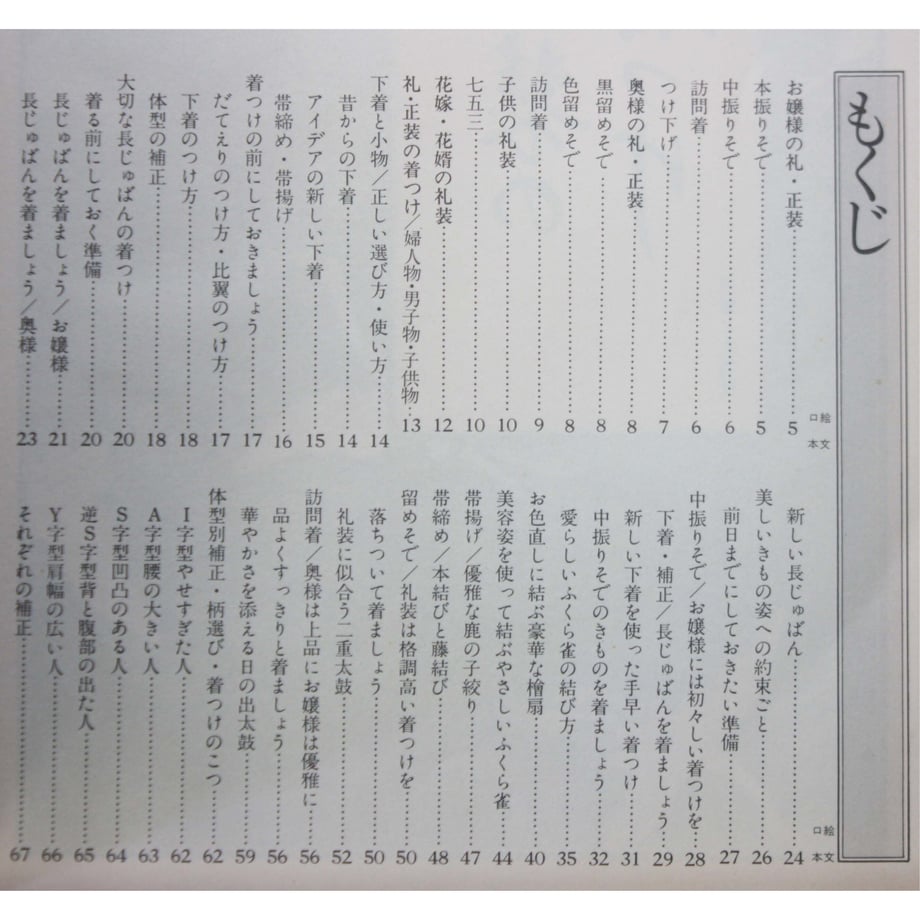 もくじ
口絵
本文
お嬢様の礼・正装 5
本振りそで 5
中振りそで 6
訪問着 6
つけ下げ 7
奥様の礼・正装 8
黒留めそで 8
色留めそで 8
訪問着 9
子供の礼装 10
七五三 10
花嫁・花婿の礼装 12
礼・正装の着つけ/婦人物・男子物・子供物 13
下着と小物/正しい選び方・使い方 14
昔からの下着 14
アイデアの新しい下着 15
帯締め・帯揚げ 16
着つけの前にしておきましょう 17
だてえりのつけ方・比翼のつけ方 17
下着のつけ方 18
体型の補正 18
大切な長じゅばんの着つけ 20
着る前にしておく準備 20
長じゅばんを着ましょう/お嬢様 21
長じゅばんを着ましょう/奥様 23
口絵
本文
新しい長じゅばん 24
美しいきもの姿への約束ごと 26
前日までにしておきたい準備 27
中振りそで/お嬢様には初々しい着つけを 28
下着・補正/長じゅばんを着ましょう 29
新しい下着を使った手早い着つけ 31
中振りそでのきものを着ましょう 32
愛らしいふくら雀の結び方 35
お色直しに結ぶ豪華な檜扇 40
美容姿を使って結ぶやさしいふくら雀 44
帯揚げ/優雅な鹿の子絞り 47
帯締め/本結びと藤結び 48
留めそで/礼装は格調高い着つけを 50
落ちついて着ましょう 50
礼装に似合う二重太鼓 52
訪問着/奥様は上品にお嬢様は優雅に 56
品よくすっきりと着ましょう 56
華やかさを添える日の出太鼓 59
体型別補正・柄選び・着つけのこつ 62
I字型やせすぎた人 62
A字型腰の大きい人 63
S字型凹凸のある人 64
逆S字型背と腹部の出た人 65
Y字型肩幅の広い人 66
それぞれの補正 67